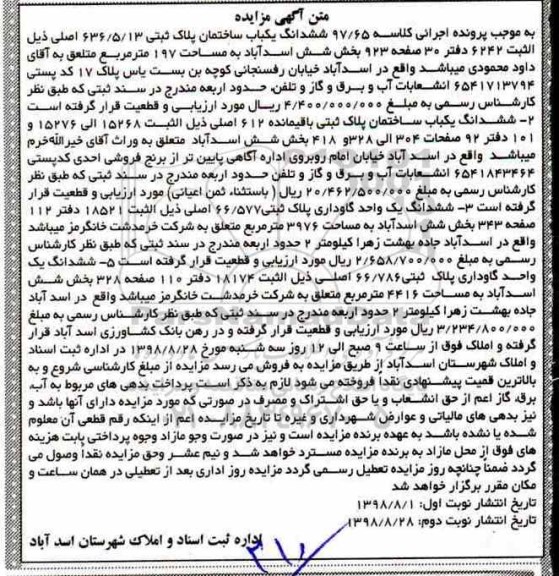 متن آگهی مزایده
به موجب پرونده اجرائی کلاسه ۹۷/۶۵ ششدانگ یکباب ساختمان پلاک ثبتی ۶۳۶/۵/۱۳ اصلی ذیل
الثبت ۶۲۴۲ دفتر ۳۰ صفحه ۹۲۳ بخش شش اسدآباد به مساحت ۱۹۷ مترمربع متعلق به آقای
داود محمودی میباشد واقع در اسدآباد خیابان رفسنجانی کوچه بن بست یاس پلاک ۱۷ کد پستی
۶۵۴۱۷۱۳۷۹۴ انشعابات آب و برق و گاز و تلفن، حدود اربعه مندرج در سند ثبتی که طبق نظر
کارشناس رسمی به مبلغ ۴/۴۰۰/۰۰۰/۰۰۰ ریال مورد ارزیابی و قطعیت قرار گرفته است
۲- ششدانگ یکباب ساختمان پلاک ثبتی باقیمانده ۶۱۲ اصلی ذیل الثبت ۱۵۲۶۸ الی ۱۵۲۷۶ و
۱۰۱ دفتر ۹۲ صفحات ۳۰۴ الی ۳۲۸و ۴۱۸ بخش شش اسدآباد متعلق به وراث آقای خیرالله خرم
میباشد واقع در اسد آباد خیابان امام روبروی اداره آگاهی پایین تر از برنج فروشی احدی کدپستی
۶۵۴۱۸۴۳۴۶۴ انشعابات آب و برق و گاز و تلفن حدود اربعه مندرج در سند ثبتی که طبق نظر
کارشناس رسمی به مبلغ ۲۰/۴۶۲/۵۰۰/۰۰۰ ریال ( باستثناء ثمن اعیانی) مورد ارزیابی و قطعیت قرار
گرفته است ۳- ششدانگ یک واحد گاوداری پلاک ثبتی۶۶/۵۷۷ اصلی ذیل الثبت ۱۸۵۲۱ دفتر ۱۱۲
صفحه ۳۴۳ بخش شش اسدآباد به مساحت ۳۹۷۶ مترمربع متعلق به شرکت خرمدشت خانگرمز میباشد
واقع در اسدآباد جاده بهشت زهرا کیلومتر ۲ حدود اربعه مندرج در سند ثبتی که طبق نظر کارشناس
رسمی به مبلغ ۲/۶۵۸/۷۰۰/۰۰۰ ریال مورد ارزیابی و قطعیت قرار گرفته است ۵- ششدانگ یک
واحد گاوداری پلاک ثبتی ۶۶/۷۸۶ اصلی ذیل الثبت ۱۸۱۷۴ دفتر ۱۱۰ صفحه ۳۲۸ بخش شش
اسدآباد به مساحت ۴۴۱۶ مترمربع متعلق به شرکت خرمدشت خانگرمز میباشد واقع در اسد آباد
جاده بهشت زهرا کیلومتر ۲ حدود اربعه مندرج در سند ثبتی که طبق نظر کارشناس رسمی به مبلغ
۳/۲۳۴/۸۰۰/۰۰۰ ریال مورد ارزیابی و قطعیت قرار گرفته و در رهن بانک کشاورزی اسد آباد قرار
گرفته و املاک فوق از ساعت ۹ صبح الی ۱۲ روز سه شنبه مورخ ۱۳۹۸/۸/۲۸ در اداره ثبت اسناد
و املاک شهرستان اسدآباد از طریق مزایده به فروش می رسد مزایده از مبلغ کارشناسی شروع و به
بالاترین قیمت پیشنهادی نقدا فروخته می شود لازم به ذکر است پرداخت بدهی های مربوط به آب،
برق، گاز اعم از حق انشعاب و یا حق اشتراک و مصرف در صورتی که مورد مزایده دارای آنها باشد و
نیز بدهی های مالیاتی و عوارض شهرداری و غیره تا تاریخ مزایده اعم از اینکه رقم قطعی آن معلوم
شده یا نشده باشد به عهده برنده مزایده است و نیز در صورت وجو مازاد وجوه پرداختی بابت هزینه
های فوق از محل مازاد به برنده مزایده مسترد خواهد شد و نیم عشر وحق مزایده نقدا وصول می
گردد ضمناً چنانچه روز مزایده تعطیل رسمی گردد مزایده روز اداری بعد از تعطیلی در همان ساعت و
مکان مقرر برگزار خواهد شد
تاریخ انتشار نوبت اول: ۱۳۹۸/۸/۱
تاریخ انتشار نوبت دوم: ۱۳۹۸/۸/۲۸
اداره ثبت اسناد و املاک شهرستان اسد آباد